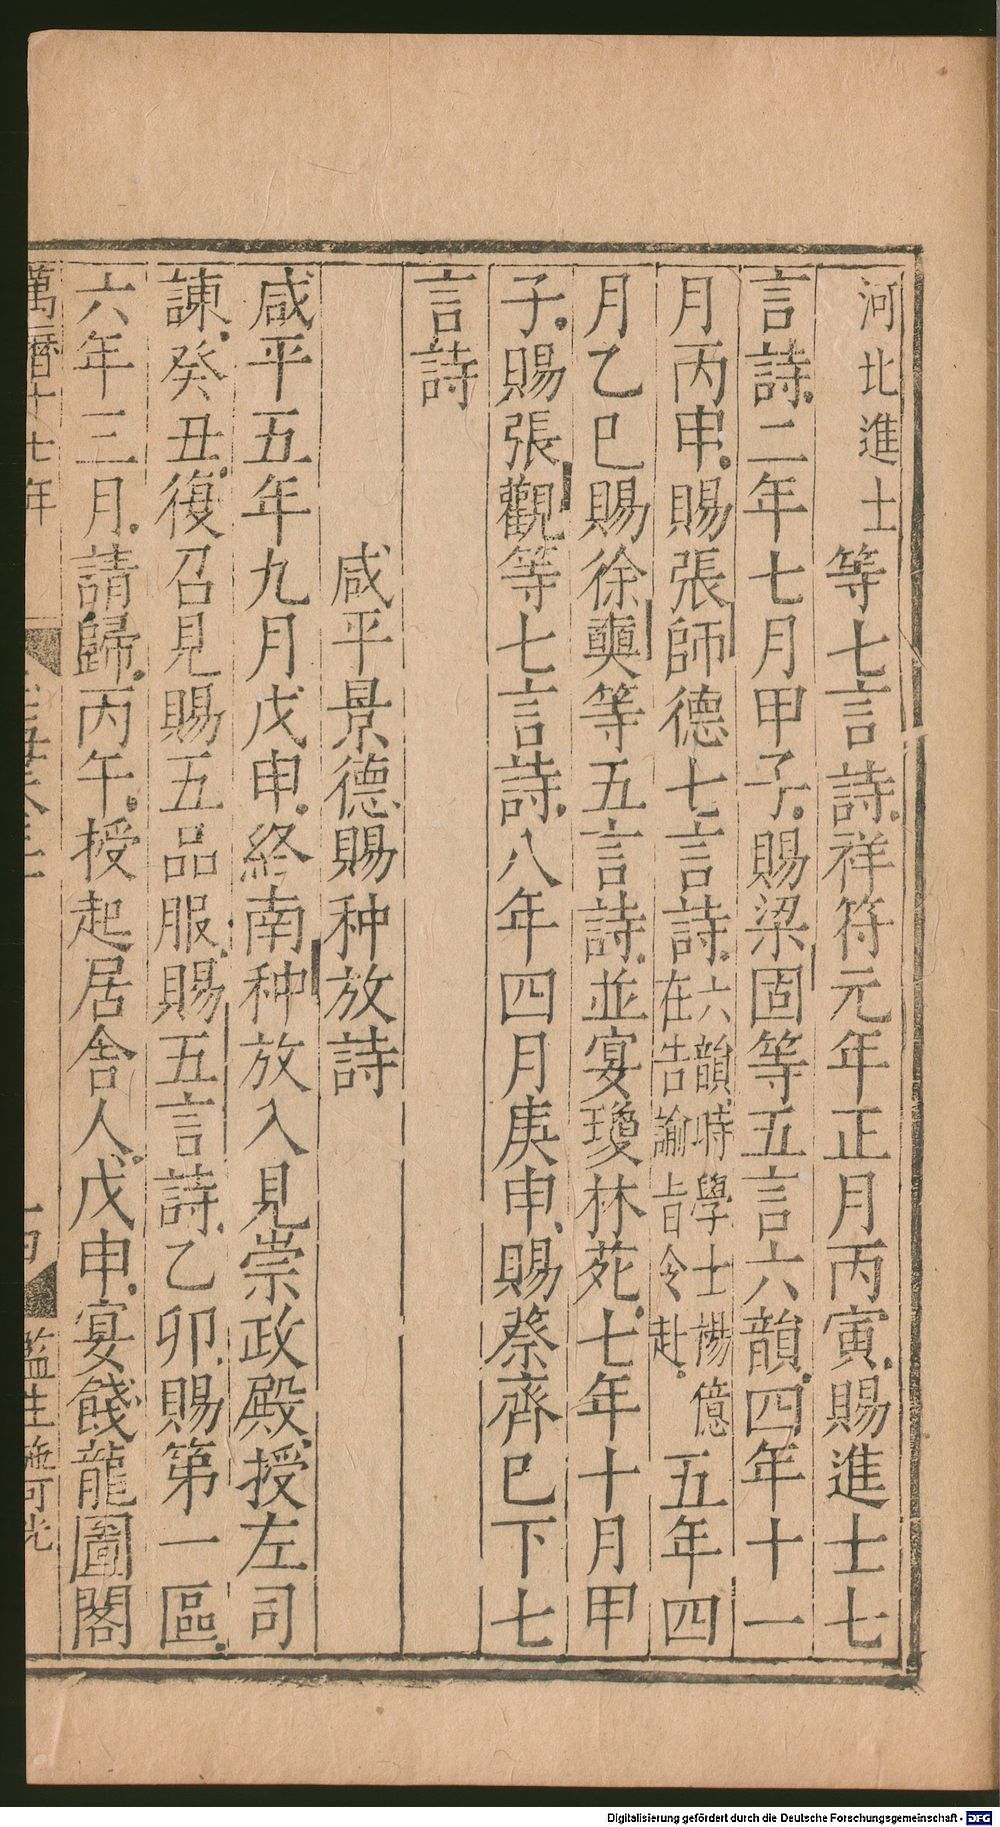 河北進士等七言詩祥符元年正月丙寅賜進士七
言詩二年七月甲子賜梁固等五言六韻四年十一
月丙申賜張師德七言詩六韻時學士楊億在告諭旨令赴五年四
月乙巳賜徐奭等五言詩並宴瓊林苑七年十月甲
子賜張觀等七言詩八年四月庚申賜蔡齊已下七
言詩
咸平景德賜种放詩
咸平五年九月戊申終南种放入見崇政殿授左司
諫癸丑復召見賜五品服賜五言詩乙卯賜第一區
六年三月請歸丙午授起居舍人戊申宴餞龍圖閣
萬曆十七年
監生施可光
Digitalisierung gefördert durch die Deutsche Forschungsgemeinschaft - DFG